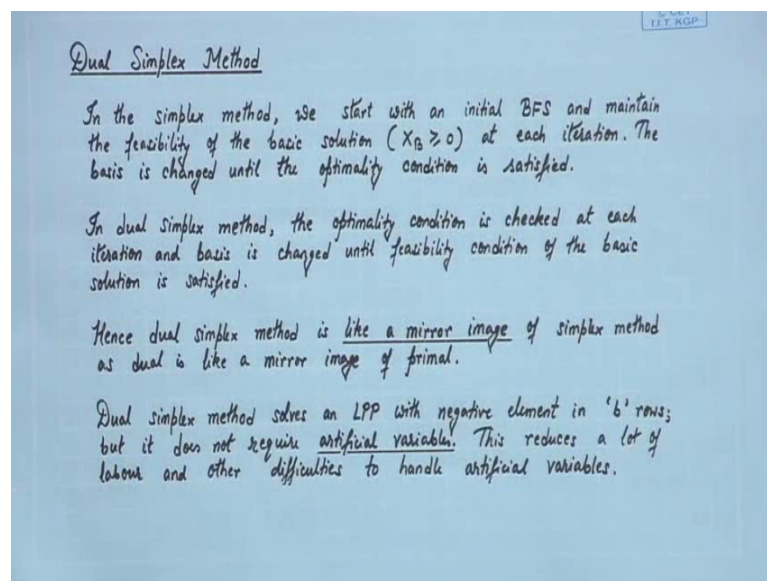 I.I.T. KGP
Dual Simplex Method
In the simplex method, we start with an initial BFS and maintain
the feasibility of the basic solution (X_B ≥ 0) at each iteration. The
basis is changed until the optimality condition is satisfied.
In dual simplex method, the optimality condition is checked at each
iteration and basis is changed until feasibility condition of the basic
solution is satisfied.
Hence dual simplex method is like a mirror image of simplex method
as dual is like a mirror image of primal.
Dual simplex method solves an LPP with negative element in 'b' rows;
but it does not require artificial variables. This reduces a lot of
labour and other difficulties to handle artificial variables.